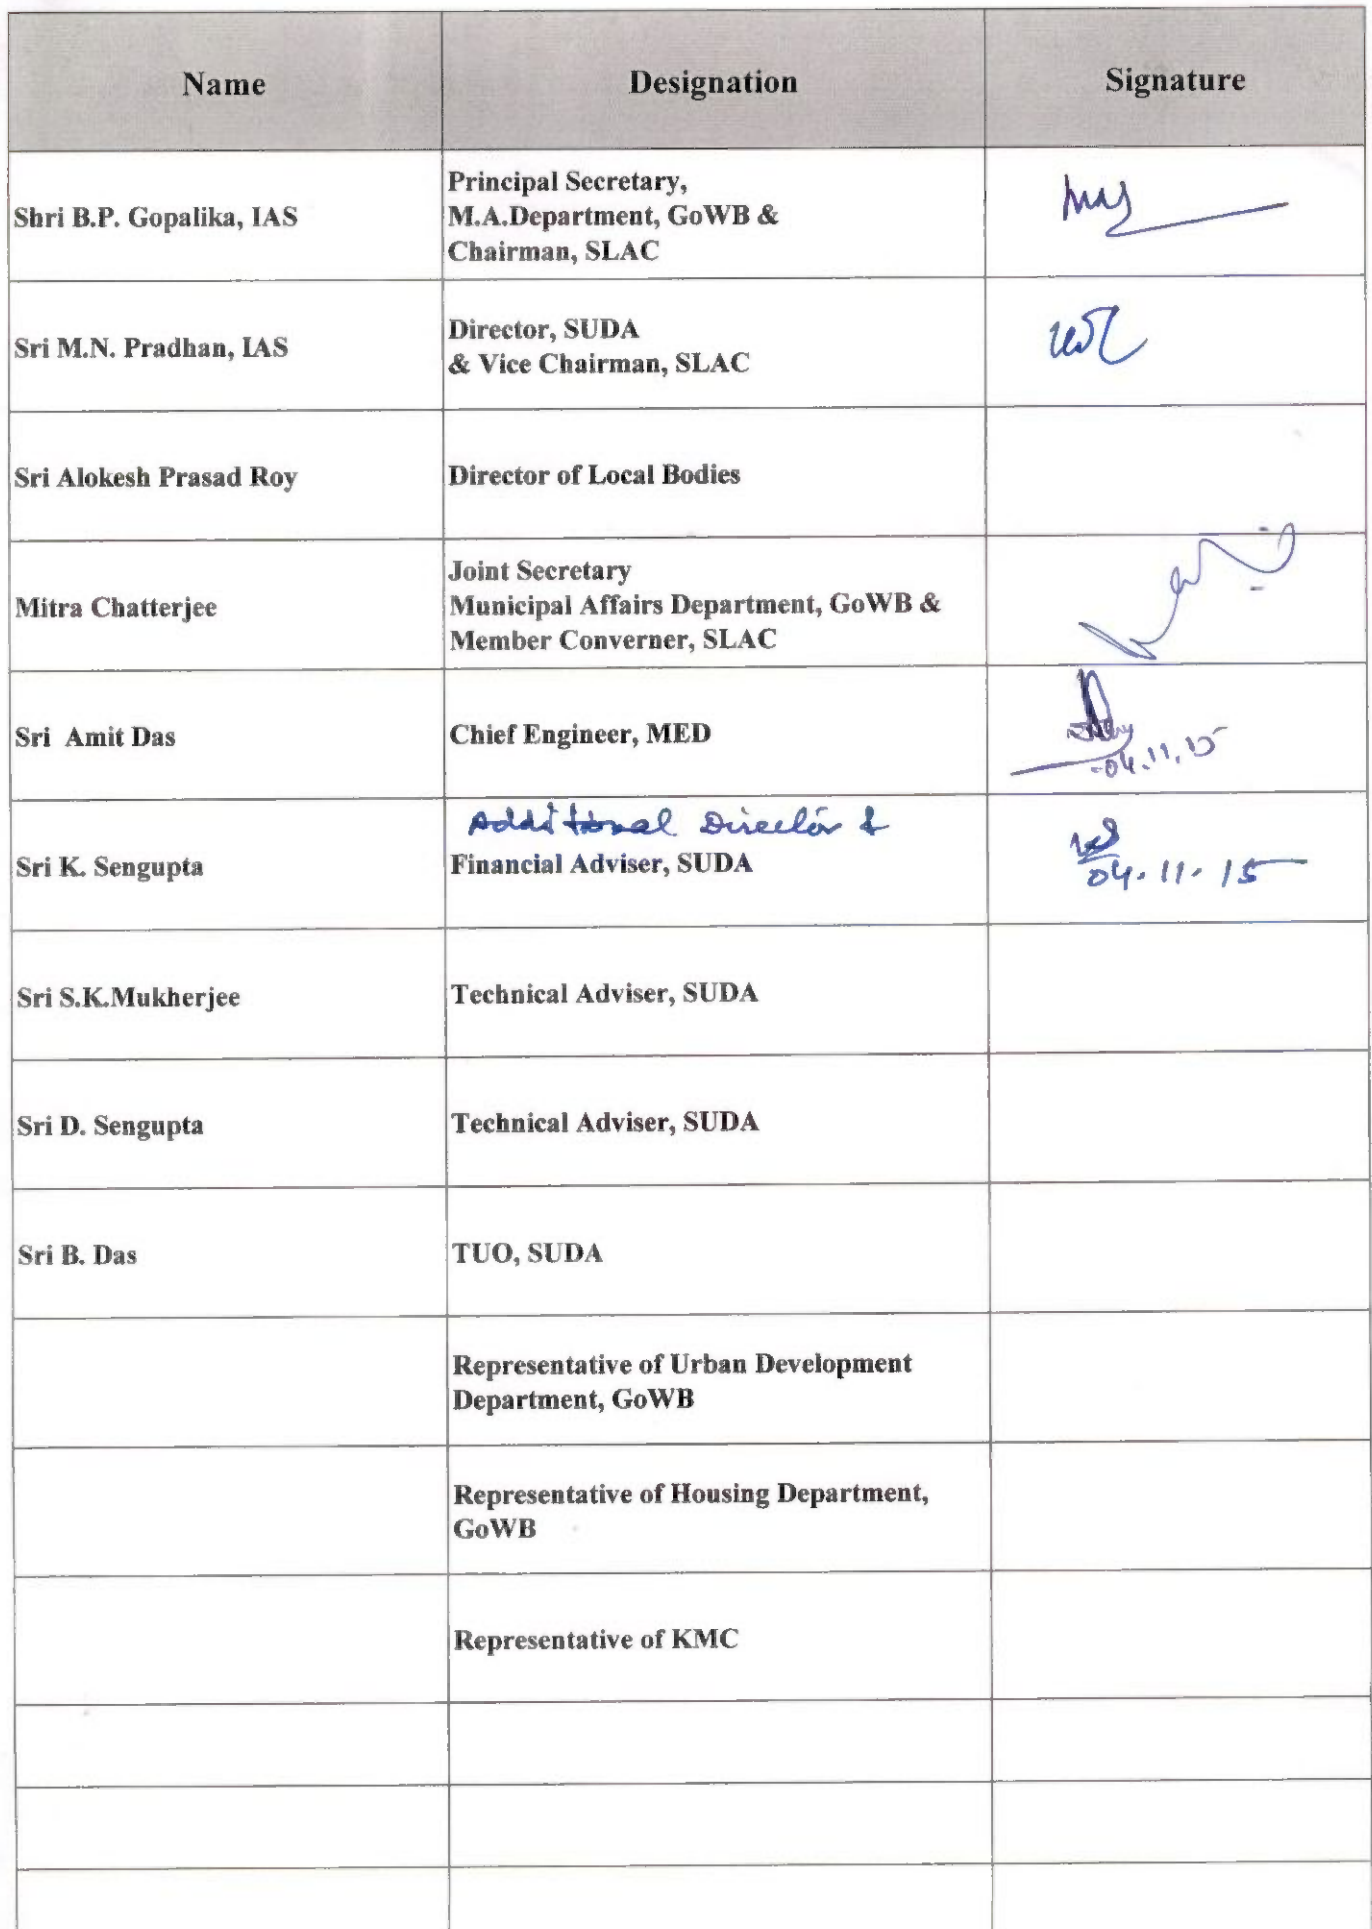 Name
Designation
Signature
Shri B.P. Gopalika, IAS
Principal Secretary,
M.A.Department, GoWB &
Chairman, SLAC
Sri M.N. Pradhan, IAS
Director, SUDA
& Vice Chairman, SLAC
Sri Alokesh Prasad Roy
Director of Local Bodies
Mitra Chatterjee
Joint Secretary
Municipal Affairs Department, GoWB &
Member Converner, SLAC
Sri Amit Das
Chief Engineer, MED
04.11.15
Sri K. Sengupta
Additional Director &
Financial Adviser, SUDA
04.11.15
Sri S.K.Mukherjee
Technical Adviser, SUDA
Sri D. Sengupta
Technical Adviser, SUDA
Sri B. Das
TUO, SUDA
Representative of Urban Development
Department, GoWB
Representative of Housing Department,
GoWB
Representative of KMC